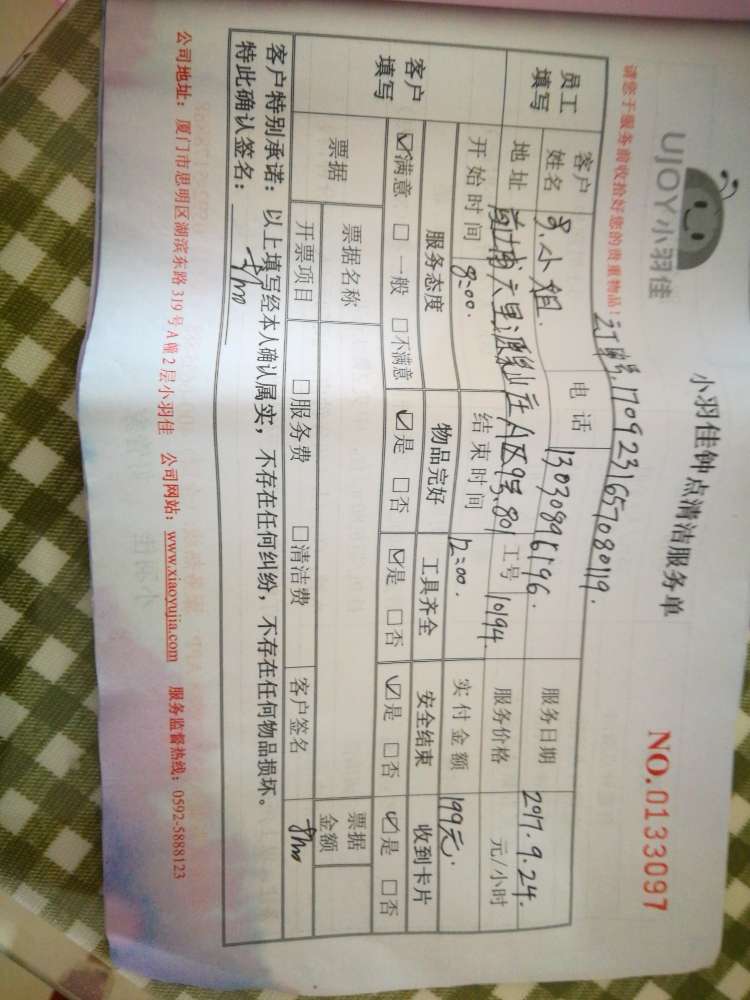 UJOY小羽佳
小羽佳钟点清洁服务单
NO.0133097
请您于服务前收拾好您的贵重物品!
1709231657080119.
员工填写
客户姓名 小姐. 电话 13030896196. 服务日期 2017.9.24.
地址 A区9号.801 工号 10194. 服务价格 元/小时
开始时间 9:00. 结束时间 12:00. 实付金额 199元.
客户填写
服务态度 物品完好 工具齐全 安全结束 收到卡片
☑满意 □一般 □不满意 ☑是 □否 ☑是 □否 ☑是 □否 ☑是 □否
票据 票据名称 □服务费 □清洁费 客户签名 票据金额
开票项目
客户特别承诺:以上填写经本人确认属实,不存在任何纠纷,不存在任何物品损坏。
特此确认签名:
公司地址:厦门市思明区湖滨东路319号A幢2层小羽佳 公司网站:www.xiaoyujia.com 服务监督热线:0592-5888123